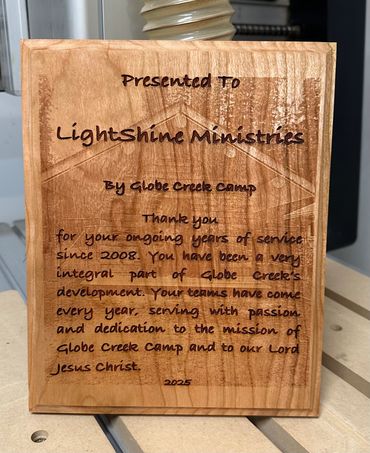 Presented To
LightShine Ministries
By Globe Creek Camp
Thank you
for your ongoing years of service
since 2008. You have been a very
integral part of Globe Creek's
development. Your teams have come
every year, serving with passion
and dedication to the mission of
Globe Creek Camp and to our Lord
Jesus Christ.
2025